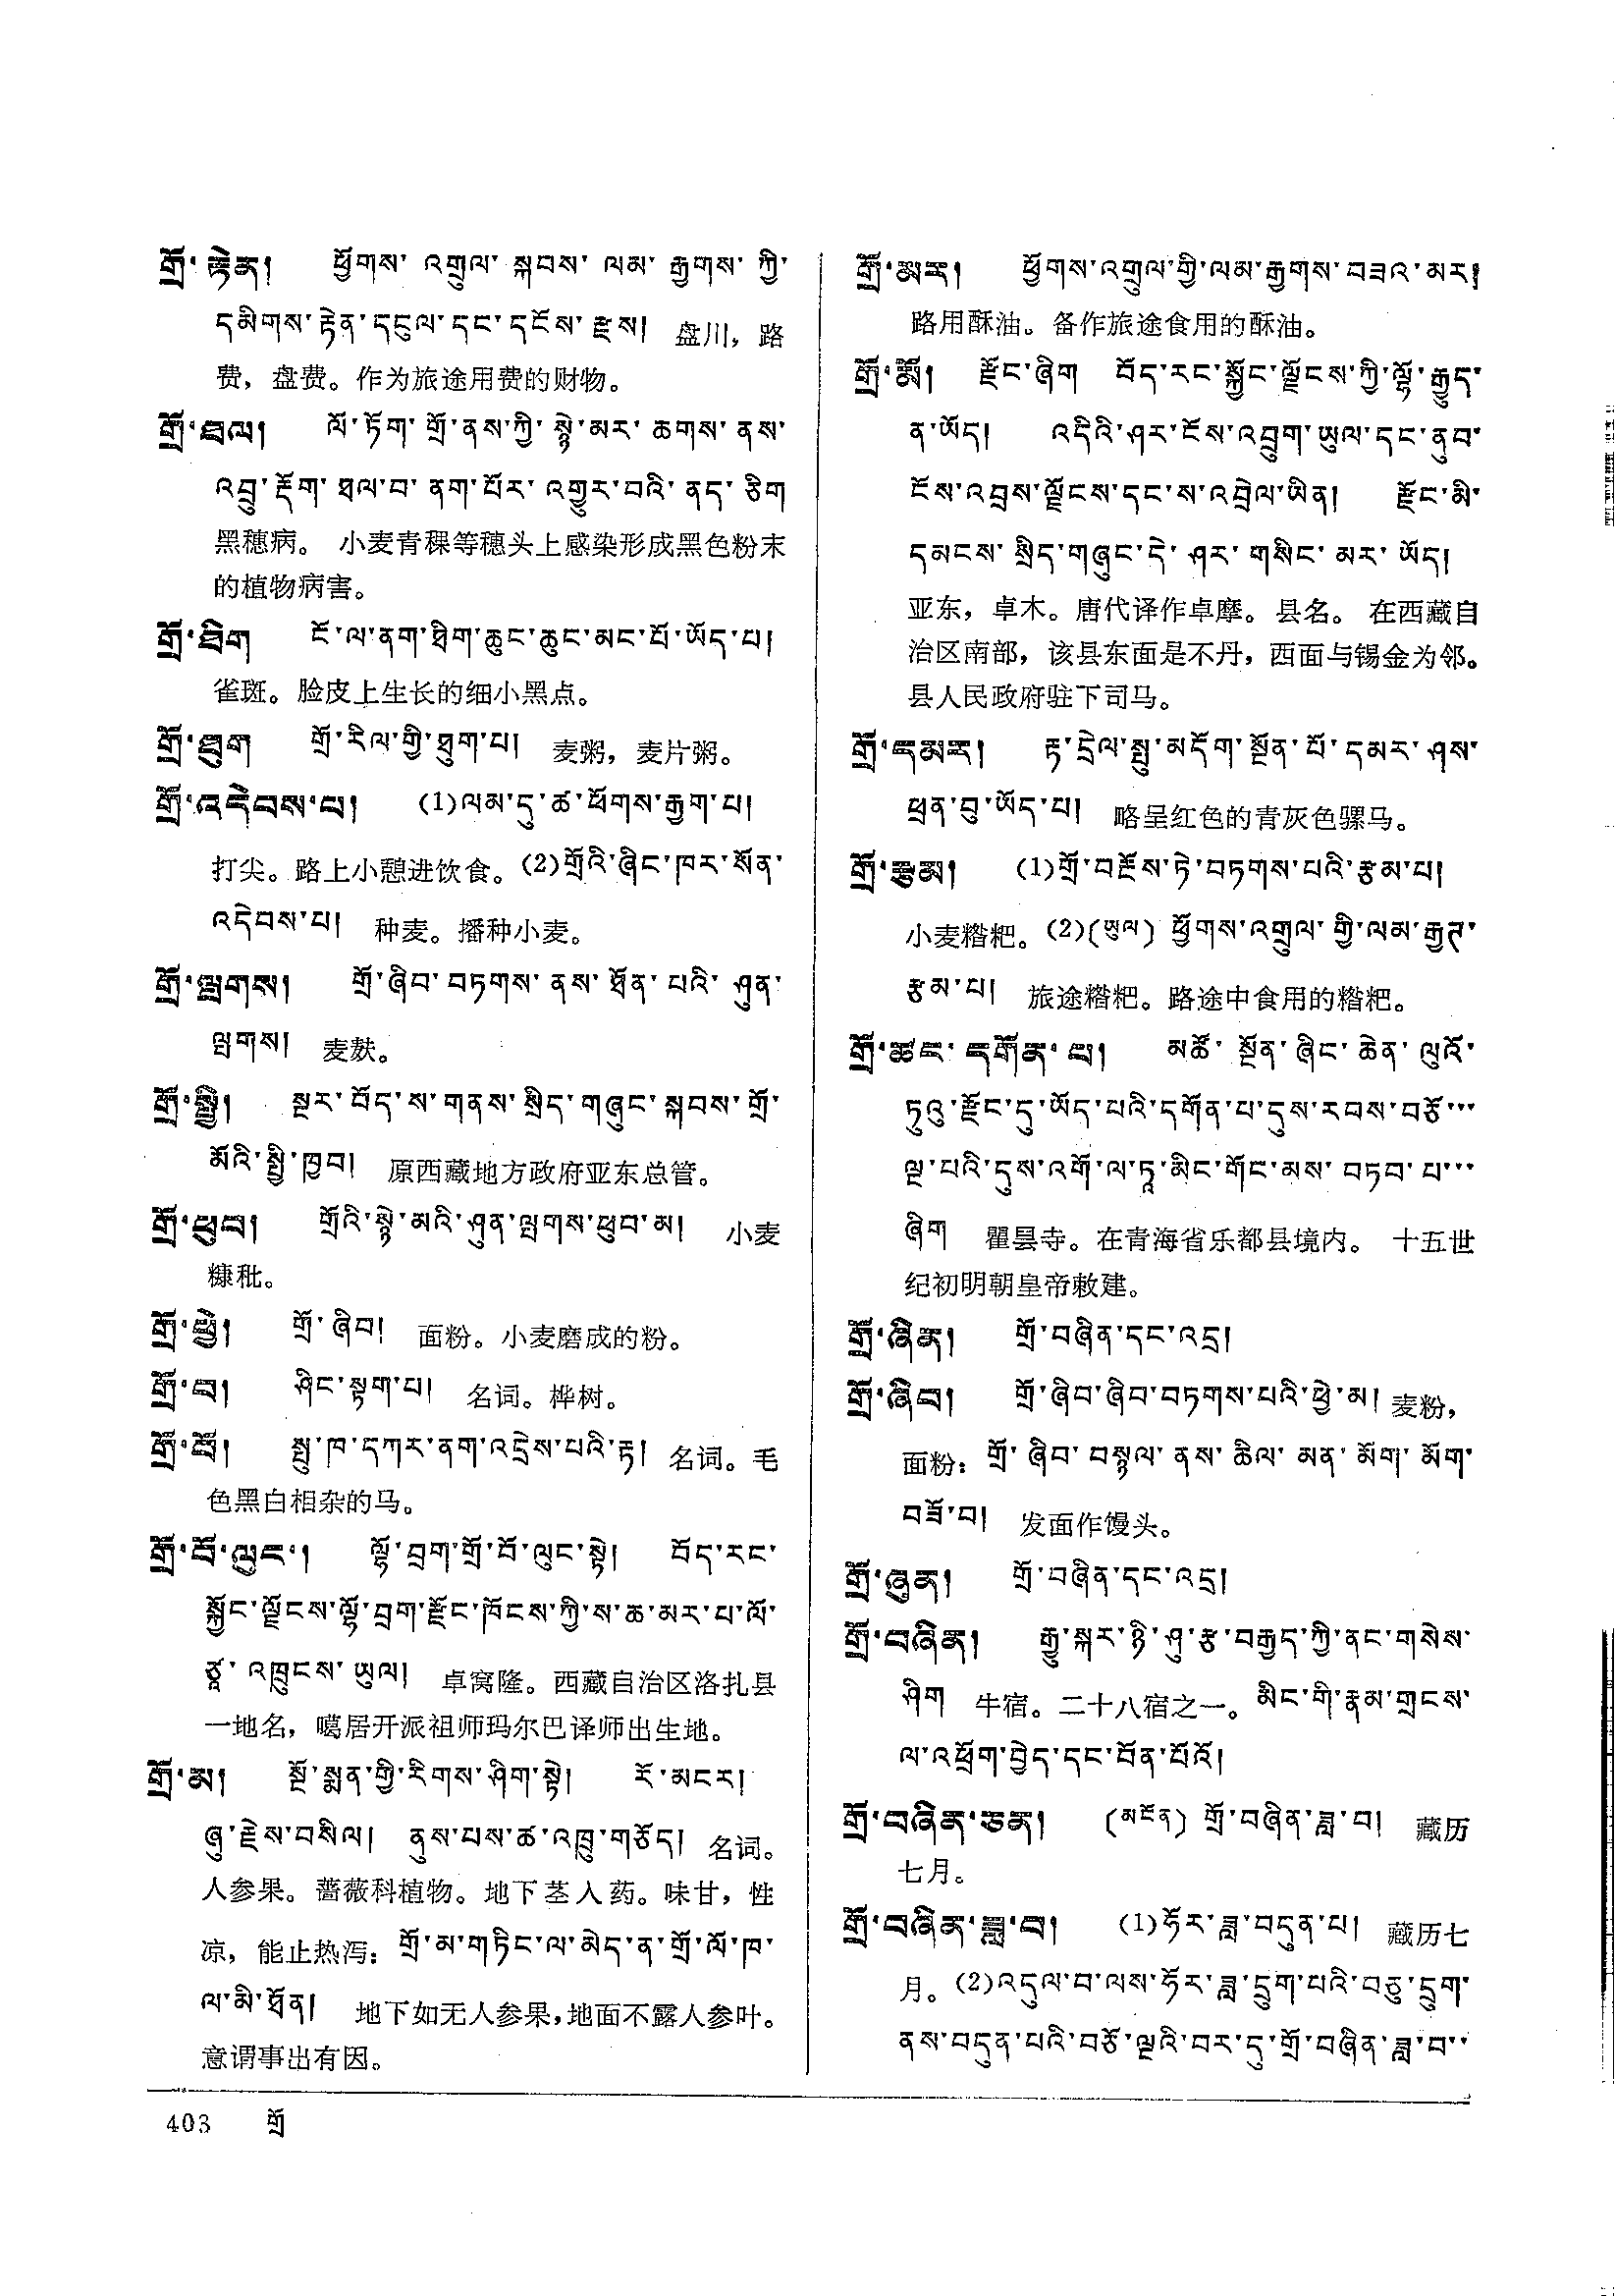 གྲོ་རྟེན། ཕྱོགས་འགྲུལ་སྐབས་ལམ་རྒྱགས་ཀྱི་
དམིགས་རྟེན་དངུལ་དང་དངོས་རྫས། 盘川，路
费，盘费。作为旅途用费的财物。
གྲོ་ཐལ། ལོ་ཏོག་གྲོ་ནས་ཀྱི་སྙེ་མར་ཆགས་ནས་
འབྲུ་རྡོག་ཐལ་བ་ནག་པོར་འགྱུར་བའི་ནད་ཅིག
黑穗病。 小麦青稞等穗头上感染形成黑色粉末
的植物病害。
གྲོ་ཐིག ངོ་ལ་ནག་ཐིག་ཆུང་ཆུང་མང་པོ་ཡོད་པ།
雀斑。脸皮上生长的细小黑点。
གྲོ་ཐུག གྲོ་རིལ་གྱི་ཐུག་པ། 麦粥，麦片粥。
གྲོ་འདེབས་པ། (1)ལམ་དུ་ཚ་ཕོགས་རྒྱག་པ།
打尖。路上小憩进饮食。(2)གྲོའི་ཞིང་ཁར་སོན་
འདེབས་པ། 种麦。播种小麦。
གྲོ་ལྤགས། གྲོ་ཞིབ་བཏགས་ནས་ཐོན་པའི་ཤུན་
ལྤགས། 麦麸。
གྲོ་སྤྱི། སྔར་བོད་ས་གནས་སྲིད་གཞུང་སྐབས་གྲོ་
མོའི་སྤྱི་ཁྱབ། 原西藏地方政府亚东总管。
གྲོ་ཕུབ། གྲོའི་སྙེ་མའི་ཤུན་ལྤགས་ཕུབ་མ། 小麦
糠秕。
གྲོ་ཕྱེ། གྲོ་ཞིབ། 面粉。小麦磨成的粉。
གྲོ་བ། ཤིང་སྟག་པ། 名词。桦树。
གྲོ་བོ། སྤུ་ཁ་དཀར་ནག་འདྲེས་པའི་རྟ། 名词。毛
色黑白相杂的马。
གྲོ་བོ་ལུང་། ལྷོ་བྲག་གྲོ་བོ་ལུང་སྟེ། བོད་རང་
སྐྱོང་ལྗོངས་ལྷོ་བྲག་རྫོང་ཁོངས་ཀྱི་ས་ཆ་མར་པ་ལོ་
ཙཱ་འཁྲུངས་ཡུལ། 卓窝隆。西藏自治区洛扎县
一地名，噶居开派祖师玛尔巴译师出生地。
གྲོ་མ། སྔོ་སྨན་གྱི་རིགས་ཤིག་སྟེ། རོ་མངར།
ཞུ་རྗེས་བསིལ། ནུས་པས་ཚ་འཁྲུ་གཅོད། 名词。
人参果。蔷薇科植物。地下茎入药。味甘，性
凉，能止热泻：གྲོ་མ་གཏིང་ལ་མེད་ན་གྲོ་ལོ་ཁ་
ལ་མི་ཐོན། 地下如无人参果，地面不露人参叶。
意谓事出有因。
གྲོ་མར། ཕྱོགས་འགྲུལ་གྱི་ལམ་རྒྱགས་བཟའ་མར།
路用酥油。备作旅途食用的酥油。
གྲོ་མོ། རྫོང་ཞིག བོད་རང་སྐྱོང་ལྗོངས་ཀྱི་ལྷོ་རྒྱུད་
ན་ཡོད། འདིའི་ཤར་ངོས་འབྲུག་ཡུལ་དང་ནུབ་
ངོས་འབྲས་ལྗོངས་དང་ས་འབྲེལ་ཡིན། རྫོང་མི་
དམངས་སྲིད་གཞུང་དེ་ཤར་གསིང་མར་ཡོད།
亚东，卓木。唐代译作卓摩。县名。 在西藏自
治区南部，该县东面是不丹，西面与锡金为邻。
县人民政府驻下司马。
གྲོ་དམར། རྟ་དྲེལ་སྤུ་མདོག་སྔོན་པོ་དམར་ཤས་
ཕྲན་བུ་ཡོད་པ། 略呈红色的青灰色骡马。
གྲོ་རྩམ། (1)གྲོ་བརྔོས་ཏེ་བཏགས་པའི་རྩམ་པ།
小麦糌粑。(2)(ཡུལ) ཕྱོགས་འགྲུལ་གྱི་ལམ་རྒྱན་
རྩམ་པ། 旅途糌粑。路途中食用的糌粑。
གྲོ་ཚང་དགོན་པ། མཚོ་སྔོན་ཞིང་ཆེན་ལུའོ་
ཏུའུ་རྫོང་དུ་ཡོད་པའི་དགོན་པ་དུས་རབས་བཅོ་…
ལྔ་པའི་དུས་འགོ་ལ་ཏཱ་མིང་གོང་མས་བཏབ་པ་…
ཞིག 瞿昙寺。在青海省乐都县境内。 十五世
纪初明朝皇帝敕建。
གྲོ་ཞིན། གྲོ་བཞིན་དང་འདྲ།
གྲོ་ཞིབ། གྲོ་ཞིབ་ཞིབ་བཏགས་པའི་ཕྱེ་མ། 麦粉，
面粉：གྲོ་ཞིབ་བསྙལ་ནས་ཆིལ་མན་མོག་མོག་
བཟོ་བ། 发面作馒头。
གྲོ་ཞུན། གྲོ་བཞིན་དང་འདྲ།
གྲོ་བཞིན། རྒྱུ་སྐར་ཉི་ཤུ་རྩ་བརྒྱད་ཀྱི་ནང་གསེས་
ཤིག 牛宿。二十八宿之一。མིང་གི་རྣམ་གྲངས་
ལ་འཕྲོག་བྱེད་དང་བོན་པོའོ།
གྲོ་བཞིན་ཅན། (མངོན) གྲོ་བཞིན་ཟླ་བ། 藏历
七月。
གྲོ་བཞིན་ཟླ་བ། (1)ཧོར་ཟླ་བདུན་པ། 藏历七
月。(2)འདུལ་བ་ལས་ཧོར་ཟླ་དྲུག་པའི་བཅུ་དྲུག་
ནས་བདུན་པའི་བཅོ་ལྔའི་བར་དུ་གྲོ་བཞིན་ཟླ་བ་
403 གྲོ